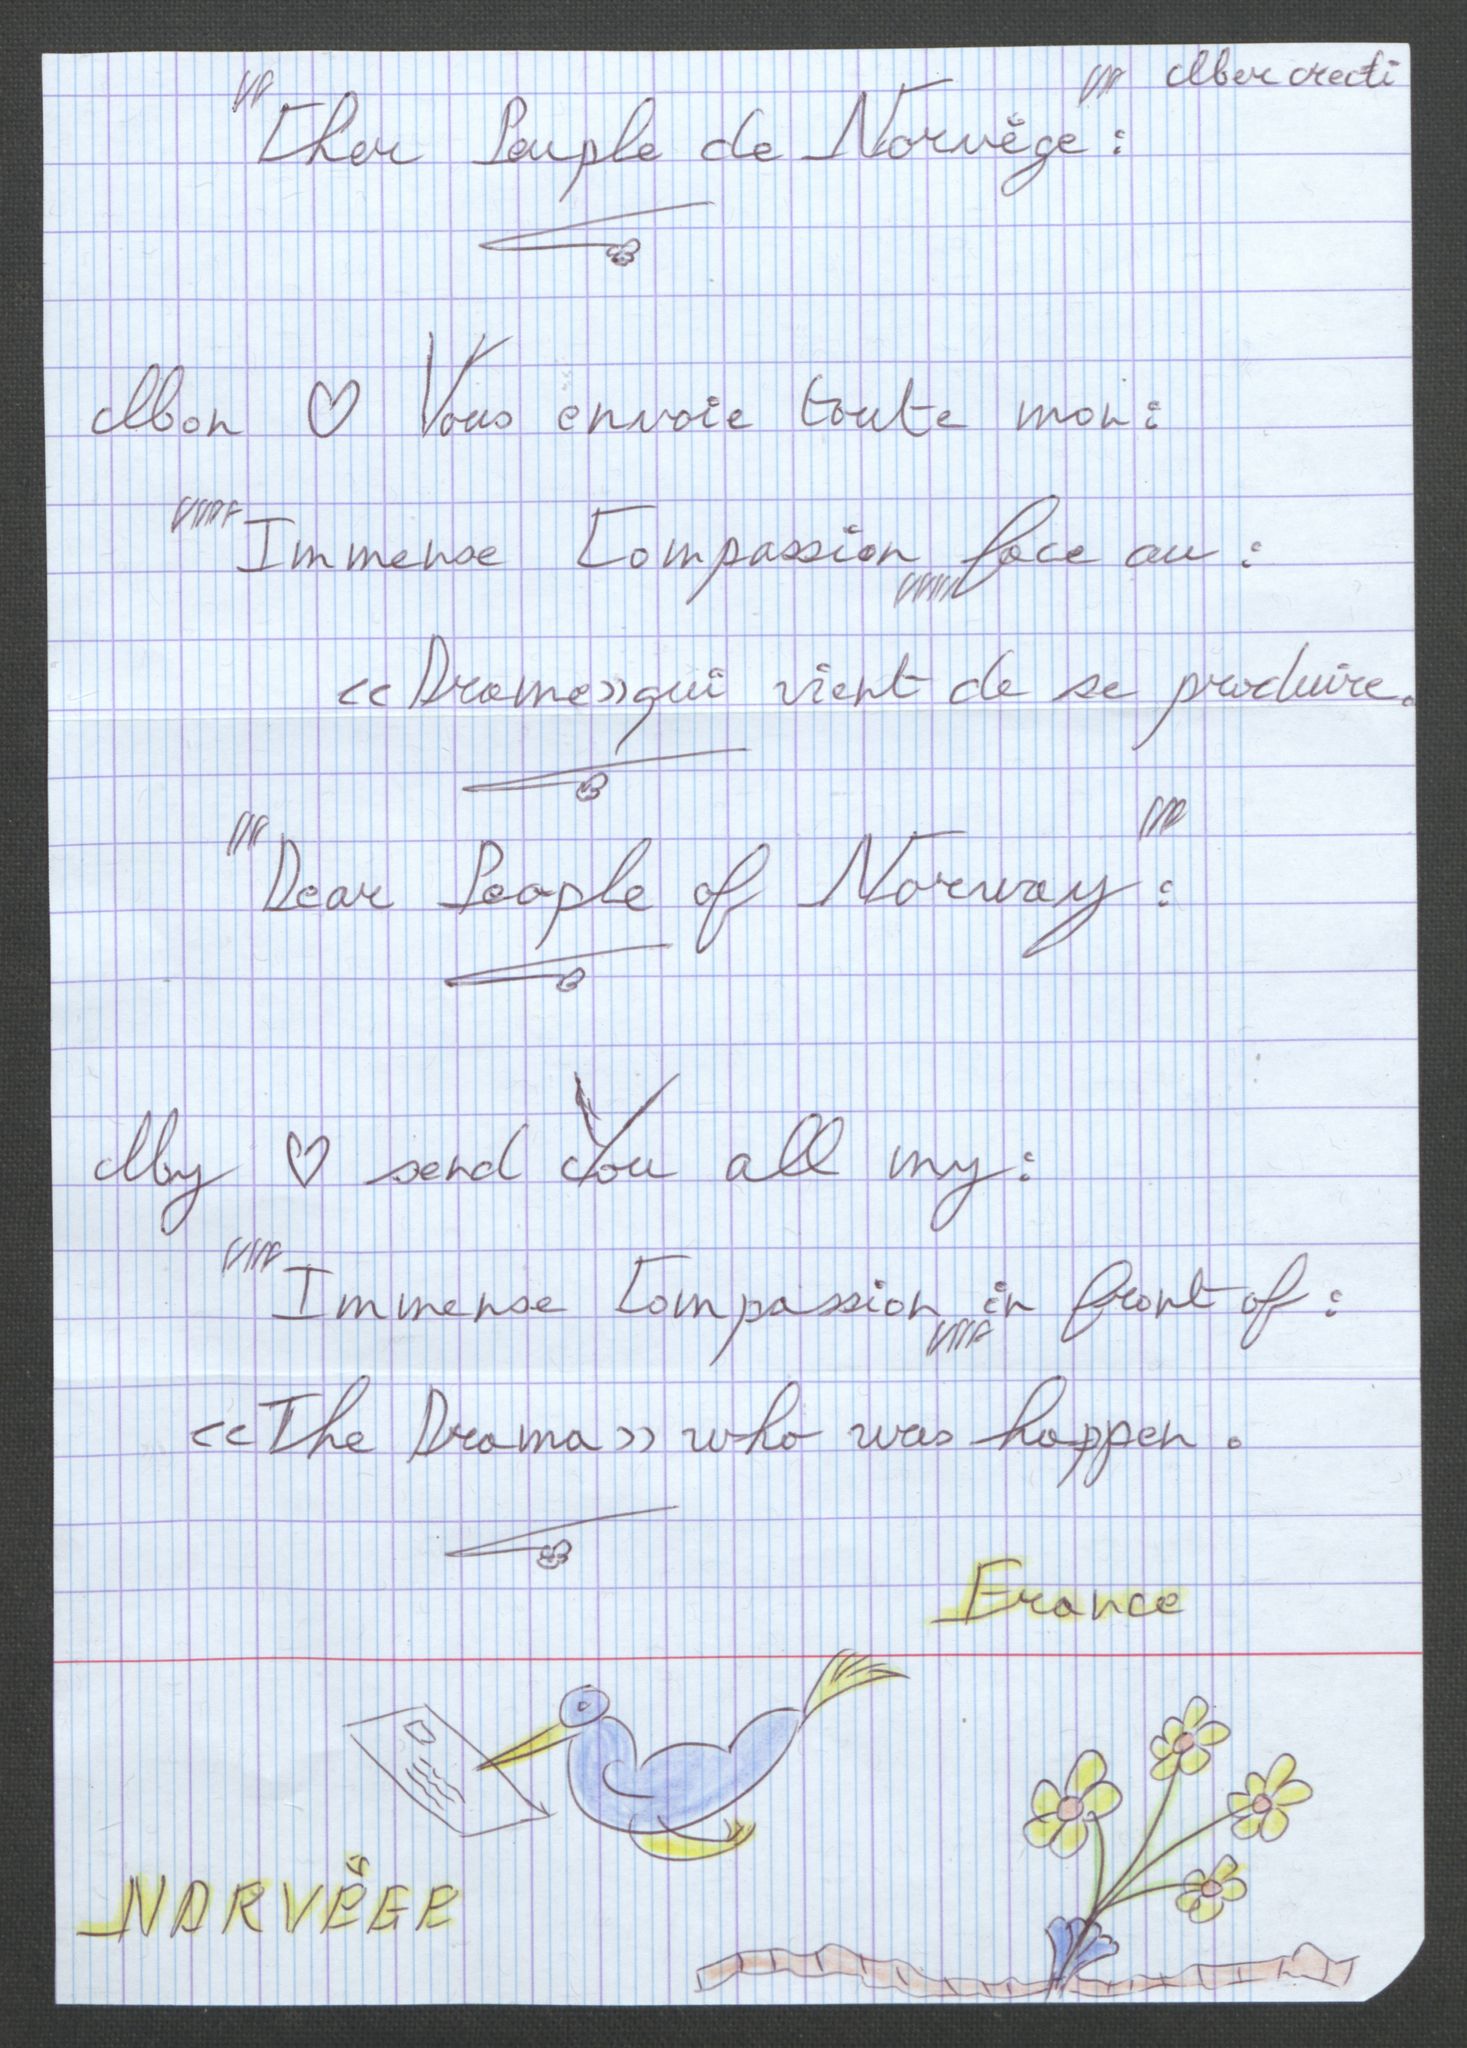 Mercredi
"Cher Peuple de Norvège":
Mon ♡ Vous envoie toute mon:
"Immense Compassion" face au:
<<Drame>> qui vient de se produire.
"Dear People of Norway":
My ♡ send You all my:
"Immense Compassion" in front of:
<<The Drama>> who was happen.
France
NORVÈGE